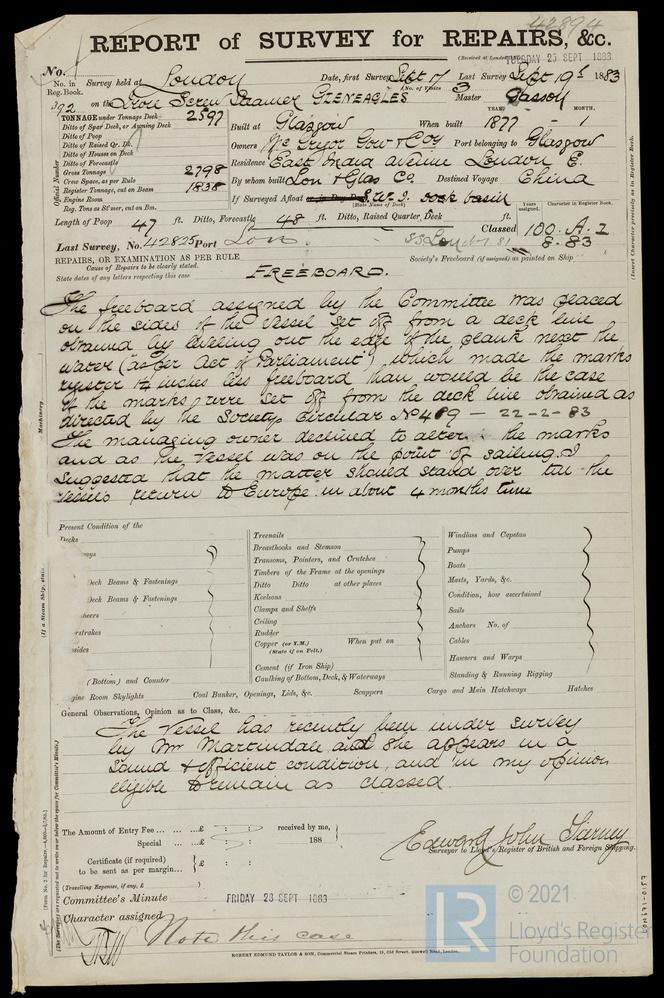 42894
REPORT of SURVEY for REPAIRS, &c.
(Received at London TUESDAY 25 SEPT 1883
No.
No. in Reg. Book.
Survey held at London Date, first Survey Sept 17 Last Survey Sept 19th 1883
(No. of Visits 3
292 on the Iron Screw Steamer GLENEAGLES Master Gasson
TONNAGE under Tonnage Deck 2597
Ditto of Spar Deck, or Awning Deck
Ditto of Poop
Ditto of Raised Qr. Dk.
Ditto of Houses on Deck
Ditto of Forecastle
Gross Tonnage 2798
Crew Space, as per Rule
Register Tonnage, cut on Beam 1838
Engine Room
Reg. Tons as St'mer, cut on Bm.
Official Number
YEAR. MONTH.
Built at Glasgow When built 1877 - 1
Owners McGregor Gow & Coy Port belonging to Glasgow
Residence East India avenue London E.
By whom built Lon & Glas Co. Destined Voyage China
If Surveyed Afloat or in Dry Dock S.W.I. dock basin
(State Name of Dock)
Years assigned. Character in Register Book.
Length of Poop 47 ft. Ditto, Forecastle 48 ft. Ditto, Raised Quarter, Deck ft. Classed 100 A. 1
Last Survey, No. 42825 Port Lon. 8.83
REPAIRS, OR EXAMINATION AS PER RULE
Causes of Repairs to be clearly stated.
State dates of any letters respecting this case
Society's Freeboard (if assigned) as painted on Ship
FREEBOARD.
The freeboard assigned by the Committee was placed
on the sides of the Vessel set off from a deck line
obtained by levelling out the edge of the plank next the
water (as per Act of Parliament) which made the marks
inches less freeboard than would be the case
if the marks were set off from the deck line obtained as
directed by the Societys Circular No 489 — 22-2-83
The managing owner declined to alter the marks
and as the Vessel was on the point of sailing I
suggested that the matter should stand over till the
Vessel's return to Europe in about 4 months time
Present Condition of the
Decks
Deck Beams & Fastenings
Deck Beams & Fastenings
(Bottom) and Counter
Engine Room Skylights
Treenails
Breasthooks and Stemson
Transoms, Pointers, and Crutches
Timbers of the Frame at the openings
Ditto Ditto at other places
Keelsons
Clamps and Shelfs
Ceiling
Rudder
Copper (or Y.M.) When put on
(State if on Felt.)
Cement (if Iron Ship)
Caulking of Bottom, Deck, & Waterways
Windlass and Capstan
Pumps
Boats
Masts, Yards, &c.
Condition, how ascertained
Sails
Anchors No. of
Cables
Hawsers and Warps
Standing & Running Rigging
Coal Bunker, Openings, Lids, &c. Scuppers Cargo and Main Hatchways Hatches
General Observations, Opinion as to Class, &c.
The Vessel has recently been under survey
by Mr Martindale and she appears in a
sound & efficient condition, and in my opinion
eligible to remain as classed.
The Amount of Entry Fee ... ... ...£ : : received by me,
Special ... ...£ : : 188
Certificate (if required)
to be sent as per margin... }£ : :
(Travelling Expenses, if any, £ )
Surveyor to Lloyd's Register of British and Foreign Shipping.
Committee's Minute FRIDAY 28 SEPT 1883
Character assigned
Note this case
ROBERT EDMUND TAYLOR & SON, Commercial Steam Printers, 19, Old Street, Goswell Road, London.
(Insert Character precisely as in Register Book.)
Machinery
(If a Steam Ship, state
LR
© 2021
Lloyd's Register
Foundation